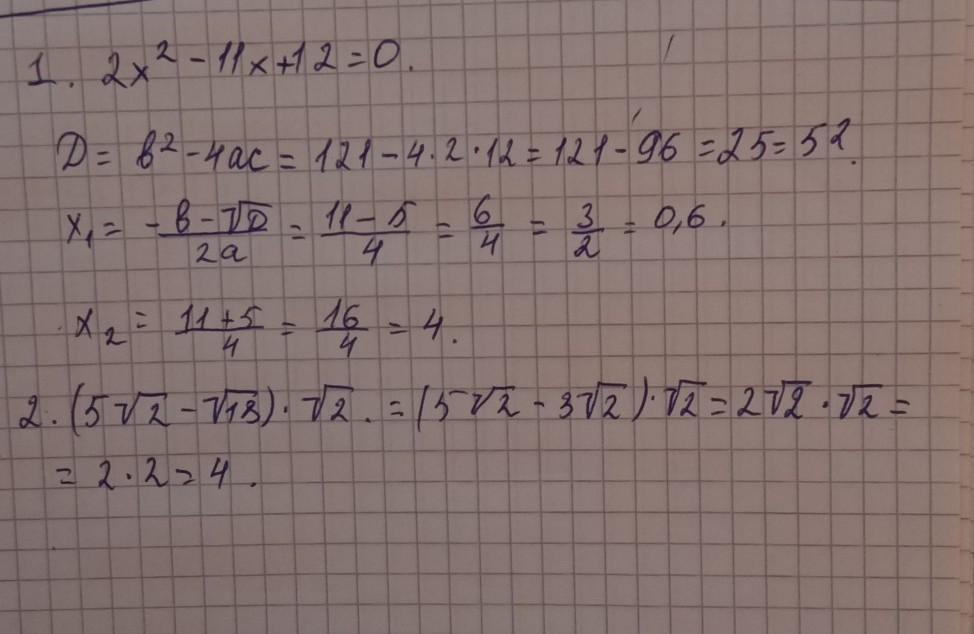 1. 2x² - 11x + 12 = 0.
D = b² - 4ac = 121 - 4 · 2 · 12 = 121 - 96 = 25 = 5².
x₁ = -b - √D / 2a = 11 - 5 / 4 = 6/4 = 3/2 = 0,6.
x₂ = 11 + 5 / 4 = 16/4 = 4.
2. (5√2 - √18) · √2. = (5√2 - 3√2) · √2 = 2√2 · √2 =
= 2 · 2 = 4.